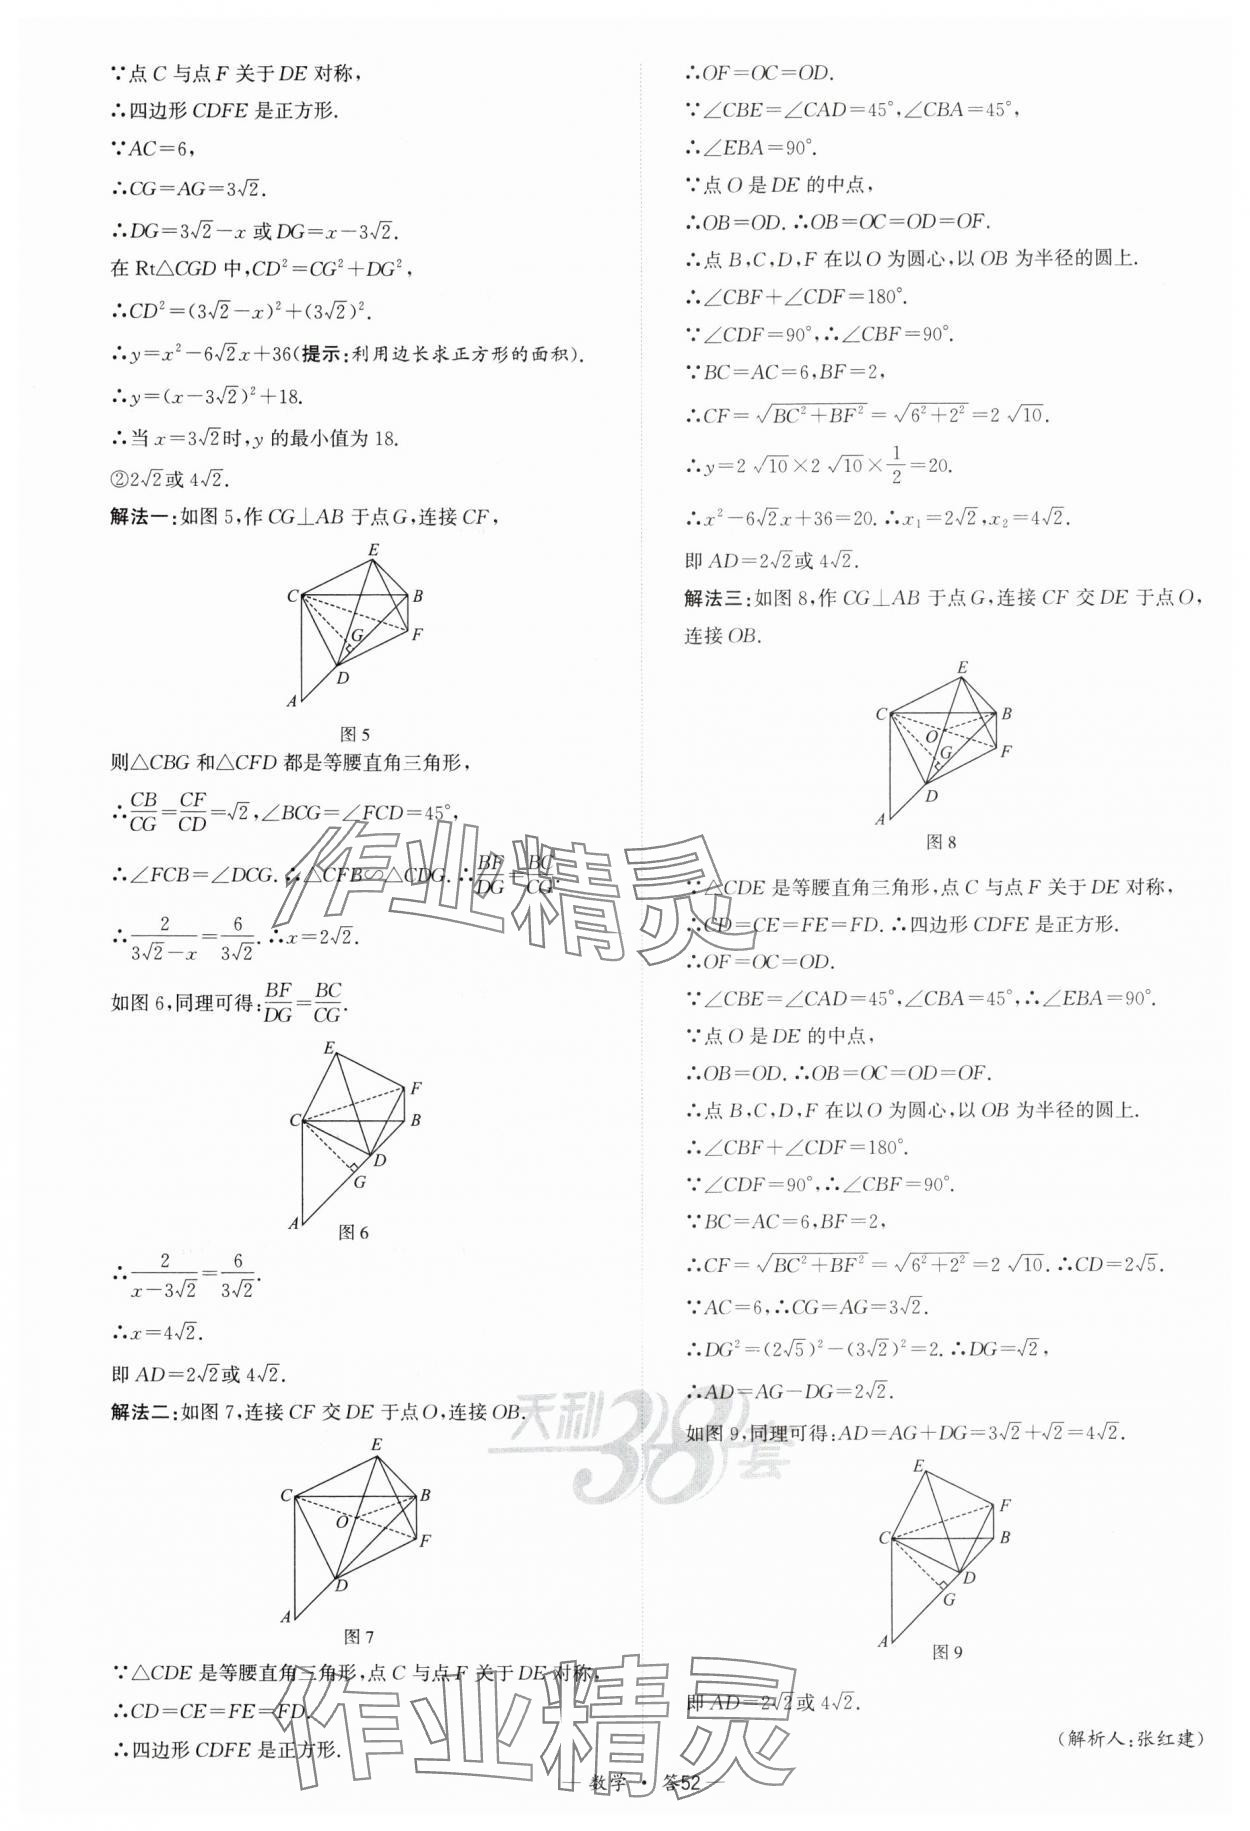 ∵点 C 与点 F 关于 DE 对称,
∴四边形 CDFE 是正方形.
∵AC=6,
∴CG=AG=3√2.
∴DG=3√2−x 或 DG=x−3√2.
在 Rt△CGD 中,CD²=CG²+DG²,
∴CD²=(3√2−x)²+(3√2)².
∴y=x²−6√2x+36(提示:利用边长求正方形的面积).
∴y=(x−3√2)²+18.
∴当 x=3√2时,y 的最小值为 18.
②2√2或 4√2.
解法一:如图 5,作 CG⊥AB 于点 G,连接 CF,
E
C B
G F
D
A
图 5
则△CBG 和△CFD 都是等腰直角三角形,
∴CB/CG=CF/CD=√2,∠BCG=∠FCD=45°,
∴∠FCB=∠DCG.∴△CFB∽△CDG.∴BF/DG=BC/CG.
∴2/(3√2−x)=6/(3√2).∴x=2√2.
如图 6,同理可得:BF/DG=BC/CG.
E
F
C B
D
G
A
图 6
∴2/(x−3√2)=6/(3√2).
∴x=4√2.
即 AD=2√2或 4√2.
解法二:如图 7,连接 CF 交 DE 于点 O,连接 OB.
E
C B
O F
D
A
图 7
∵△CDE 是等腰直角三角形,点 C 与点 F 关于 DE 对称,
∴CD=CE=FE=FD.
∴四边形 CDFE 是正方形.
∴OF=OC=OD.
∵∠CBE=∠CAD=45°,∠CBA=45°,
∴∠EBA=90°.
∵点 O 是 DE 的中点,
∴OB=OD.∴OB=OC=OD=OF.
∴点 B,C,D,F 在以 O 为圆心,以 OB 为半径的圆上.
∴∠CBF+∠CDF=180°.
∵∠CDF=90°,∴∠CBF=90°.
∵BC=AC=6,BF=2,
∴CF=√(BC²+BF²)=√(6²+2²)=2√10.
∴y=2√10×2√10×1/2=20.
∴x²−6√2x+36=20.∴x₁=2√2,x₂=4√2.
即 AD=2√2或 4√2.
解法三:如图 8,作 CG⊥AB 于点 G,连接 CF 交 DE 于点 O,
连接 OB.
E
C B
O
G F
D
A
图 8
∵△CDE 是等腰直角三角形,点 C 与点 F 关于 DE 对称,
∴CD=CE=FE=FD.∴四边形 CDFE 是正方形.
∴OF=OC=OD.
∵∠CBE=∠CAD=45°,∠CBA=45°,∴∠EBA=90°.
∵点 O 是 DE 的中点,
∴OB=OD.∴OB=OC=OD=OF.
∴点 B,C,D,F 在以 O 为圆心,以 OB 为半径的圆上.
∴∠CBF+∠CDF=180°.
∵∠CDF=90°,∴∠CBF=90°.
∵BC=AC=6,BF=2,
∴CF=√(BC²+BF²)=√(6²+2²)=2√10.∴CD=2√5.
∵AC=6,∴CG=AG=3√2.
∴DG²=(2√5)²−(3√2)²=2.∴DG=√2,
∴AD=AG−DG=2√2.
如图 9,同理可得:AD=AG+DG=3√2+√2=4√2.
E
F
C B
D
G
A
图 9
即 AD=2√2或 4√2.
(解析人:张红建)
— 数学 · 答52 —
作业精灵
天利38套
作业精灵